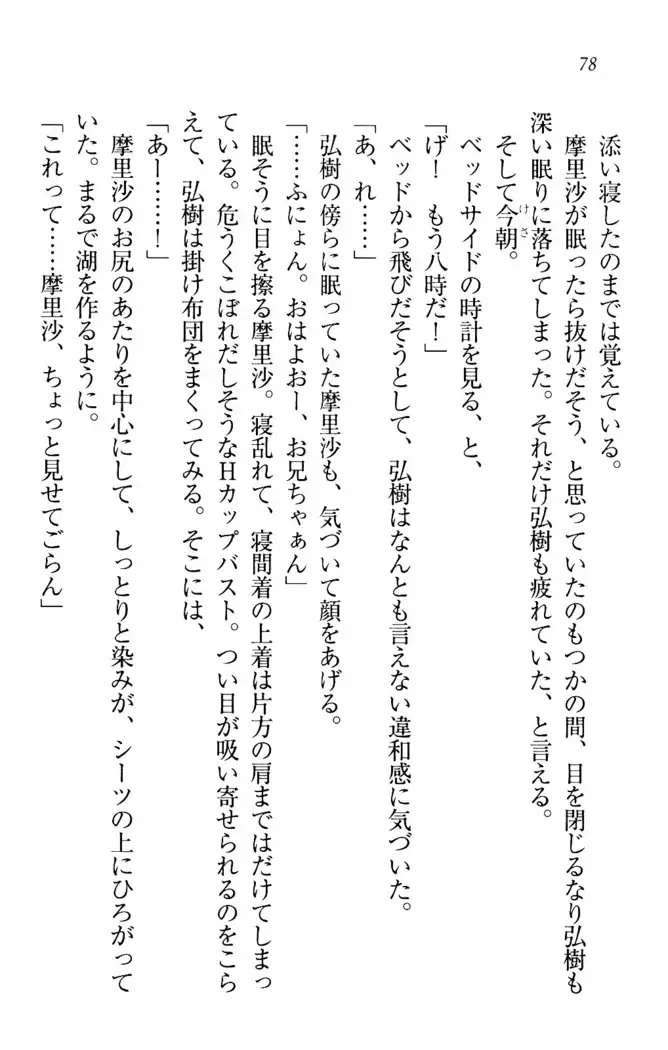 78
添い寝したのまでは覚えている。
摩里沙が眠ったら抜けだそう、と思っていたのもつかの間、目を閉じるなり弘樹も
深い眠りに落ちてしまった。それだけ弘樹も疲れていた、と言える。
そして今朝。
けさ
ベッドサイドの時計を見る、と、
「げ！　もう八時だ！」
ベッドから飛びだそうとして、弘樹はなんとも言えない違和感に気づいた。
「あ、れ……」
弘樹の傍らに眠っていた摩里沙も、気づいて顔をあげる。
「……ふにょん。おはよおー、お兄ちゃぁん」
眠そうに目を擦る摩里沙。寝乱れて、寝間着の上着は片方の肩まではだけてしまっ
ている。危うくこぼれだしそうなHカップバスト。つい目が吸い寄せられるのをこら
えて、弘樹は掛け布団をまくってみる。そこには、
「あー……！」
摩里沙のお尻のあたりを中心にして、しっとりと染みが、シーツの上にひろがって
いた。まるで湖を作るように。
「これって……摩里沙、ちょっと見せてごらん」